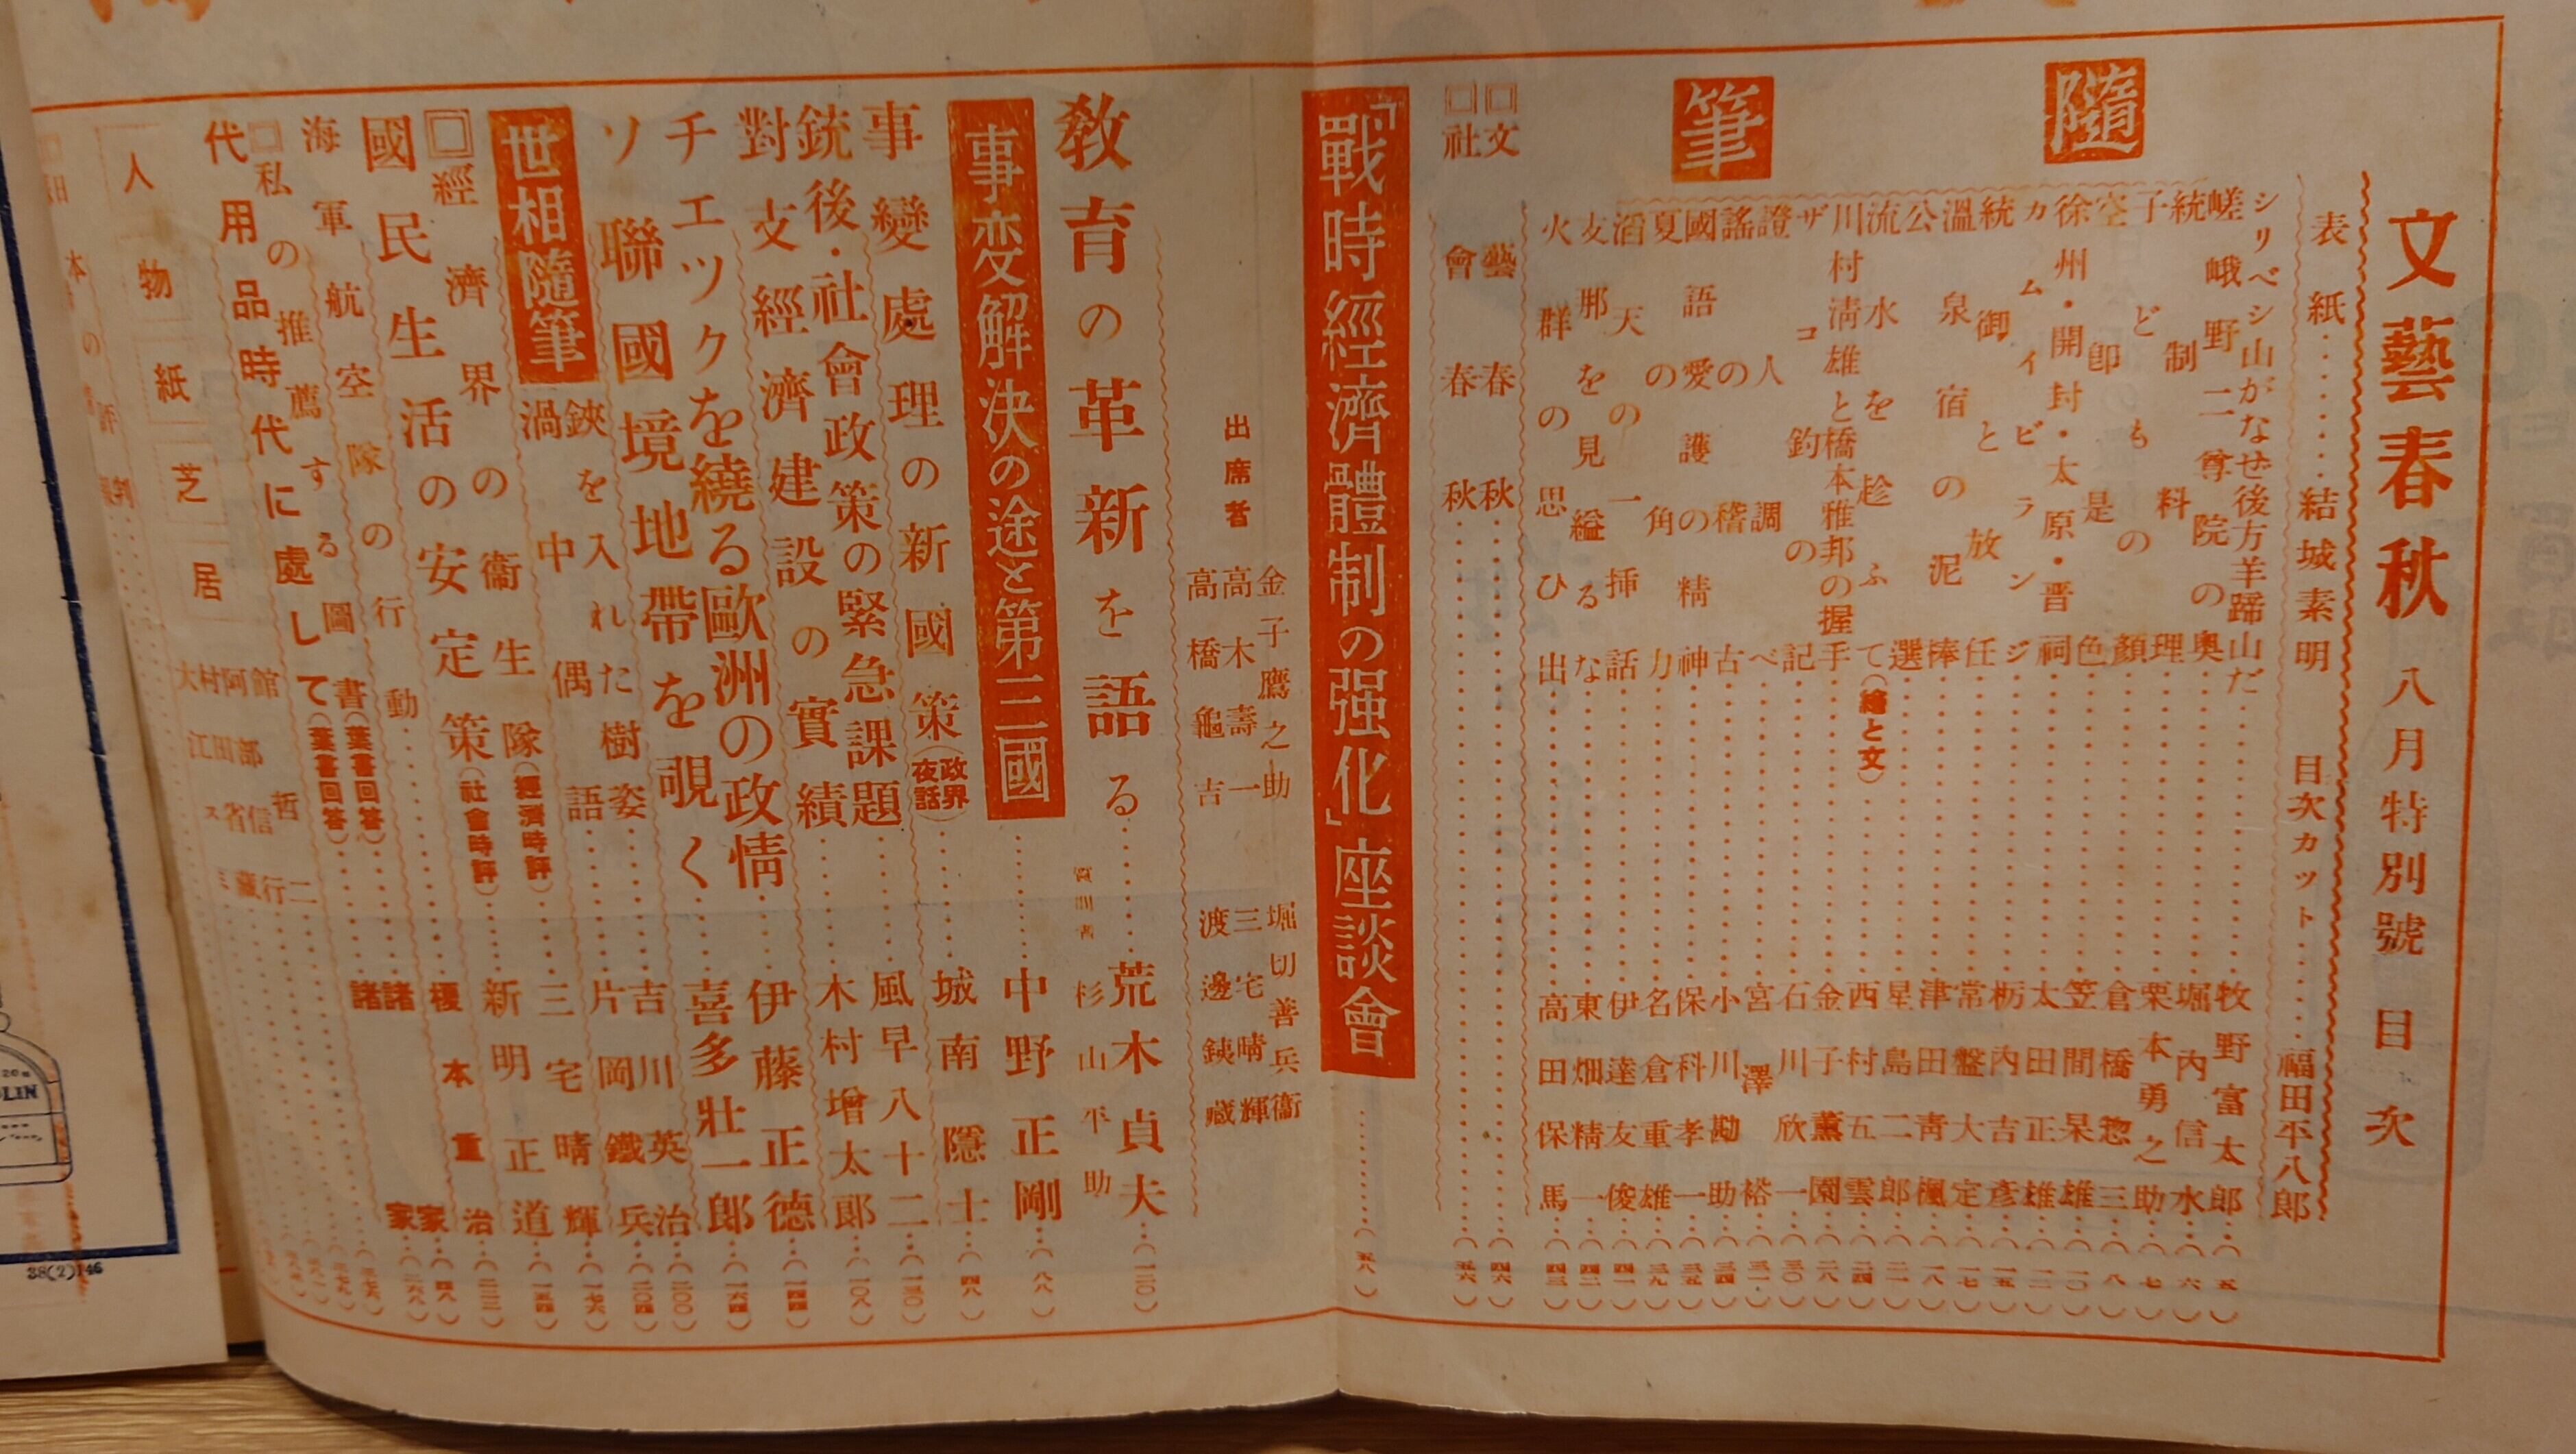 文藝春秋 八月特別號 目次
表紙…………結城素明
目次カット……福田平八郎
隨筆
シリベシ山がなぜ後方羊蹄山だ……牧野富太郎…(五)
嵯峨野二尊院の奥……堀内信水…(六)
統制料理……栗本勇之助…(七)
子どもの顏……倉橋惣三…(八)
空卽是色……笠間杲雄…(一〇)
徐州・開封・太原・晋祠……太田正雄…(一二)
カムイビランジ……栃内吉彥…(一五)
統御と放任……常盤大定…(一七)
溫泉宿の泥棒……津田靑楓…(一八)
公選……星島二郎…(二一)
流水を趁ふて(繪と文)……西村五雲…(二四)
川村淸雄と橋本雅邦の握手……金子薫園…(二八)
ザコ釣の記……石川欣一…(三〇)
證人調べ……宮澤裕…(三一)
謠の稽古……小川勘助…(三四)
國語愛護の精神……保科孝一…(三五)
夏の角力……名倉重雄…(三九)
酒天の一挿話……伊達友俊…(四一)
友邦を見縊るな……東畑精一…(四二)
火群の思ひ出……高田保馬…(四三)
文藝春秋……(四六)
社會春秋……(五六)
「戰時經濟體制の强化」座談會……(五八)
出席者
金子鷹之助
高木壽一
高橋龜吉
堀切善兵衞
三宅晴輝
渡邊銕藏
敎育の革新を語る……荒木貞夫…(一二〇)
質問者 杉山平助
事変解決の途と第三國……中野正剛…(八八)
事變處理の新國策(政界夜話)……城南隱士…(四八)
銃後・社會政策の緊急課題……風早八十二…(一三〇)
對支經濟建設の實績……木村增太郎…(一〇八)
チエツクを繞る歐洲の政情……伊藤正德…(一四四)
ソ聯國境地帶を覗く……喜多壯一郎…(一六四)
世相隨筆
鋏を入れた樹姿……吉川英治…(二〇〇)
渦中偶語……片岡鐵兵…(二〇四)
經濟界の衞生隊(經濟時評)……三宅晴輝…(一七六)
國民生活の安定策(社會時評)……新明正道…(一五四)
海軍航空隊の行動……榎本重治…(二三二)
私の推薦する圖書(葉書回答)……諸家…(四八)
代用品時代に處して(葉書回答)……諸家…(二六八)
人物紙芝居
館哲二
阿部信行
村田省藏
大江スミ